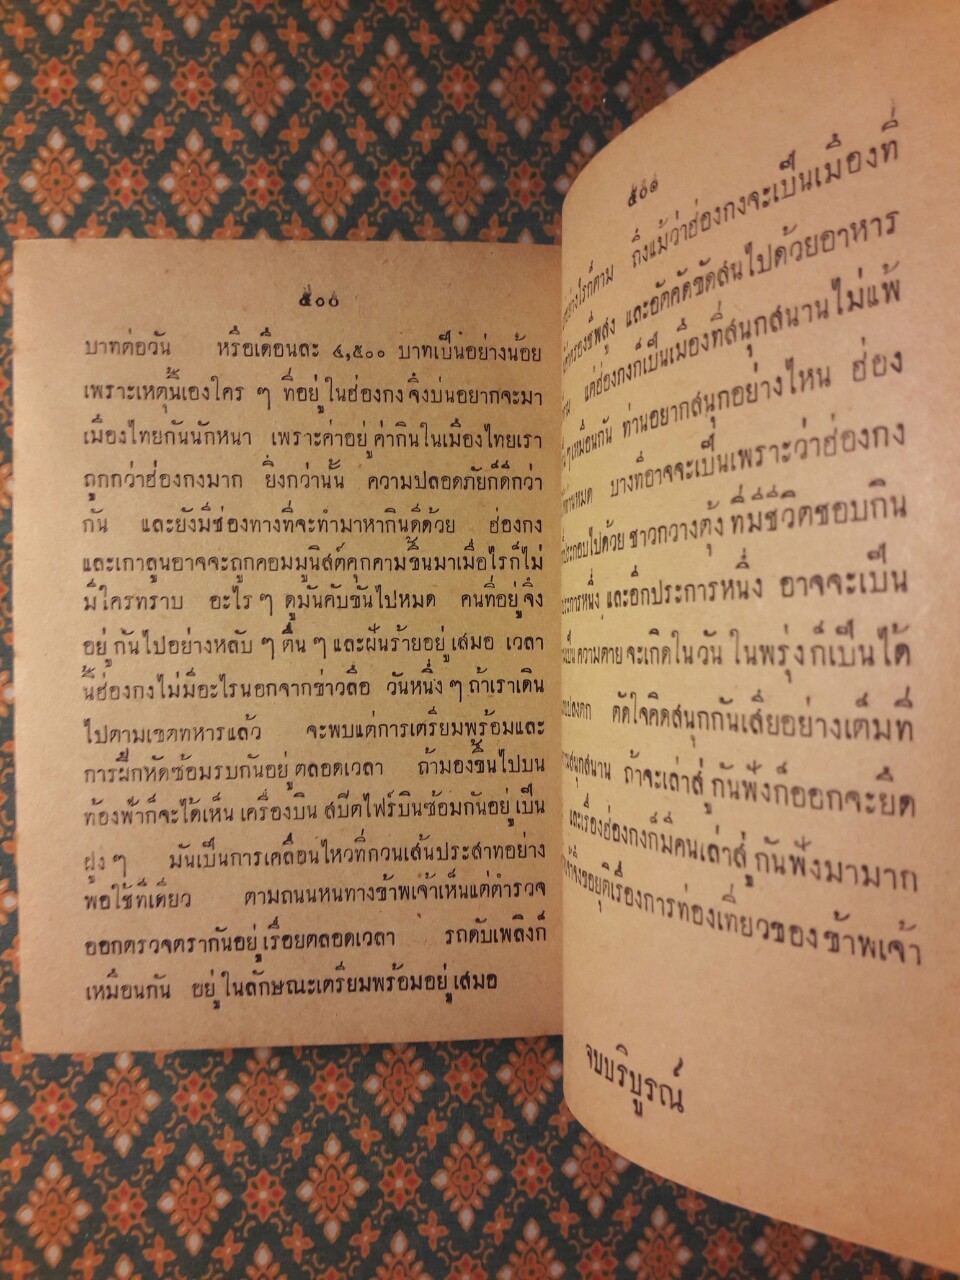 ๕๐๐
บาทต่อวัน หรือเดือนละ ๔,๕๐๐ บาทเป็นอย่างน้อย
เพราะเหตุนี้เองใคร ๆ ที่อยู่ในฮ่องกงจึงบ่นอยากจะมา
เมืองไทยกันนักหนา เพราะค่าอยู่ค่ากินในเมืองไทยเรา
ถูกกว่าฮ่องกงมาก ยิ่งกว่านั้น ความปลอดภัยก็ดีกว่า
กัน และยังมีช่องทางที่จะทำมาหากินดีด้วย ฮ่องกง
และเกาลูนอาจจะถูกคอมมูนิสต์คุกคามขึ้นมาเมื่อไรก็ไม่
มีใครทราบ อะไร ๆ ดูมันคับขันไปหมด คนที่อยู่จึง
อยู่กันไปอย่างหลับ ๆ ตื่น ๆ และฝันร้ายอยู่เสมอ เวลา
นี้ฮ่องกงไม่มีอะไรนอกจากข่าวลือ วันหนึ่ง ๆ ถ้าเราเดิน
ไปตามเขตทหารแล้ว จะพบแต่การเตรียมพร้อมและ
การฝึกหัดซ้อมรบกันอยู่ตลอดเวลา ถ้ามองขึ้นไปบน
ท้องฟ้าก็จะได้เห็น เครื่องบิน สปีตไฟร์บินซ้อมกันอยู่เป็น
ฝูง ๆ มันเป็นการเคลื่อนไหวที่กวนเส้นประสาทอย่าง
พอใช้ทีเดียว ตามถนนหนทางข้าพเจ้าเห็นแต่ตำรวจ
ออกตรวจตรากันอยู่เรื่อยตลอดเวลา รถดับเพลิงก็
เหมือนกัน อยู่ในลักษณะเตรียมพร้อมอยู่เสมอ
๕๐๑
อย่างไรก็ตาม ถึงแม้ว่าฮ่องกงจะเป็นเมืองที่
ครองชีพสูง และอัตคัดขัดสนไปด้วยอาหาร
แต่ฮ่องกงก็เป็นเมืองที่สนุกสนานไม่แพ้
เหมือนกัน ท่านอยากสนุกอย่างไหน ฮ่อง
บางทีอาจจะเป็นเพราะว่าฮ่องกง
ประกอบไปด้วย ชาวกวางตุ้ง ที่มีชีวิตชอบกิน
ประการหนึ่ง และอีกประการหนึ่ง อาจจะเป็น
ความตาย จะเกิดในวัน ในพรุ่งก็เป็นได้
ตัดใจคิดสนุกกันเสียอย่างเต็มที่
สนุกสนาน ถ้าจะเล่าสู่กันฟังก็ออกจะยืด
และเรื่องฮ่องกงก็มีคนเล่าสู่กันฟังมามาก
จึงขอยุติเรื่องการท่องเที่ยวของข้าพเจ้า
จบบริบูรณ์